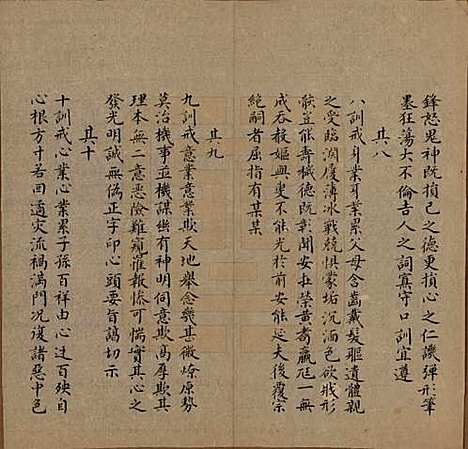 鋒怒鬼神既損己之德更損心之仁譏彈形筆
墨狂蕩大不倫古人之詞真守口訓宜遵
其八
八訓戒身業身業累父母含齒戴髮軀遺體親
之受臨淵履薄冰戰兢惧蒙垢沉湎色欲戕形
骸豈能壽穢德既彰聞安社榮黃耈羸尩一無
成吞殺嫗興更不能光於前安能延夫後覆宗
絕嗣者屈指有某某
其九
九訓戒意業意業欺天地舉念幾甚微燎原勢
莫治機事並機謀幽有神明伺意欺為摩欺其
理本無二意惡險難窺崔報慘可惴實其心之
發光明誠無偽正字印心頭要旨謁切示
其十
十訓戒心業心業累子孫百祥由心迓百殃自
心根方寸若回遹灾流禍滿門况復諸惡中色